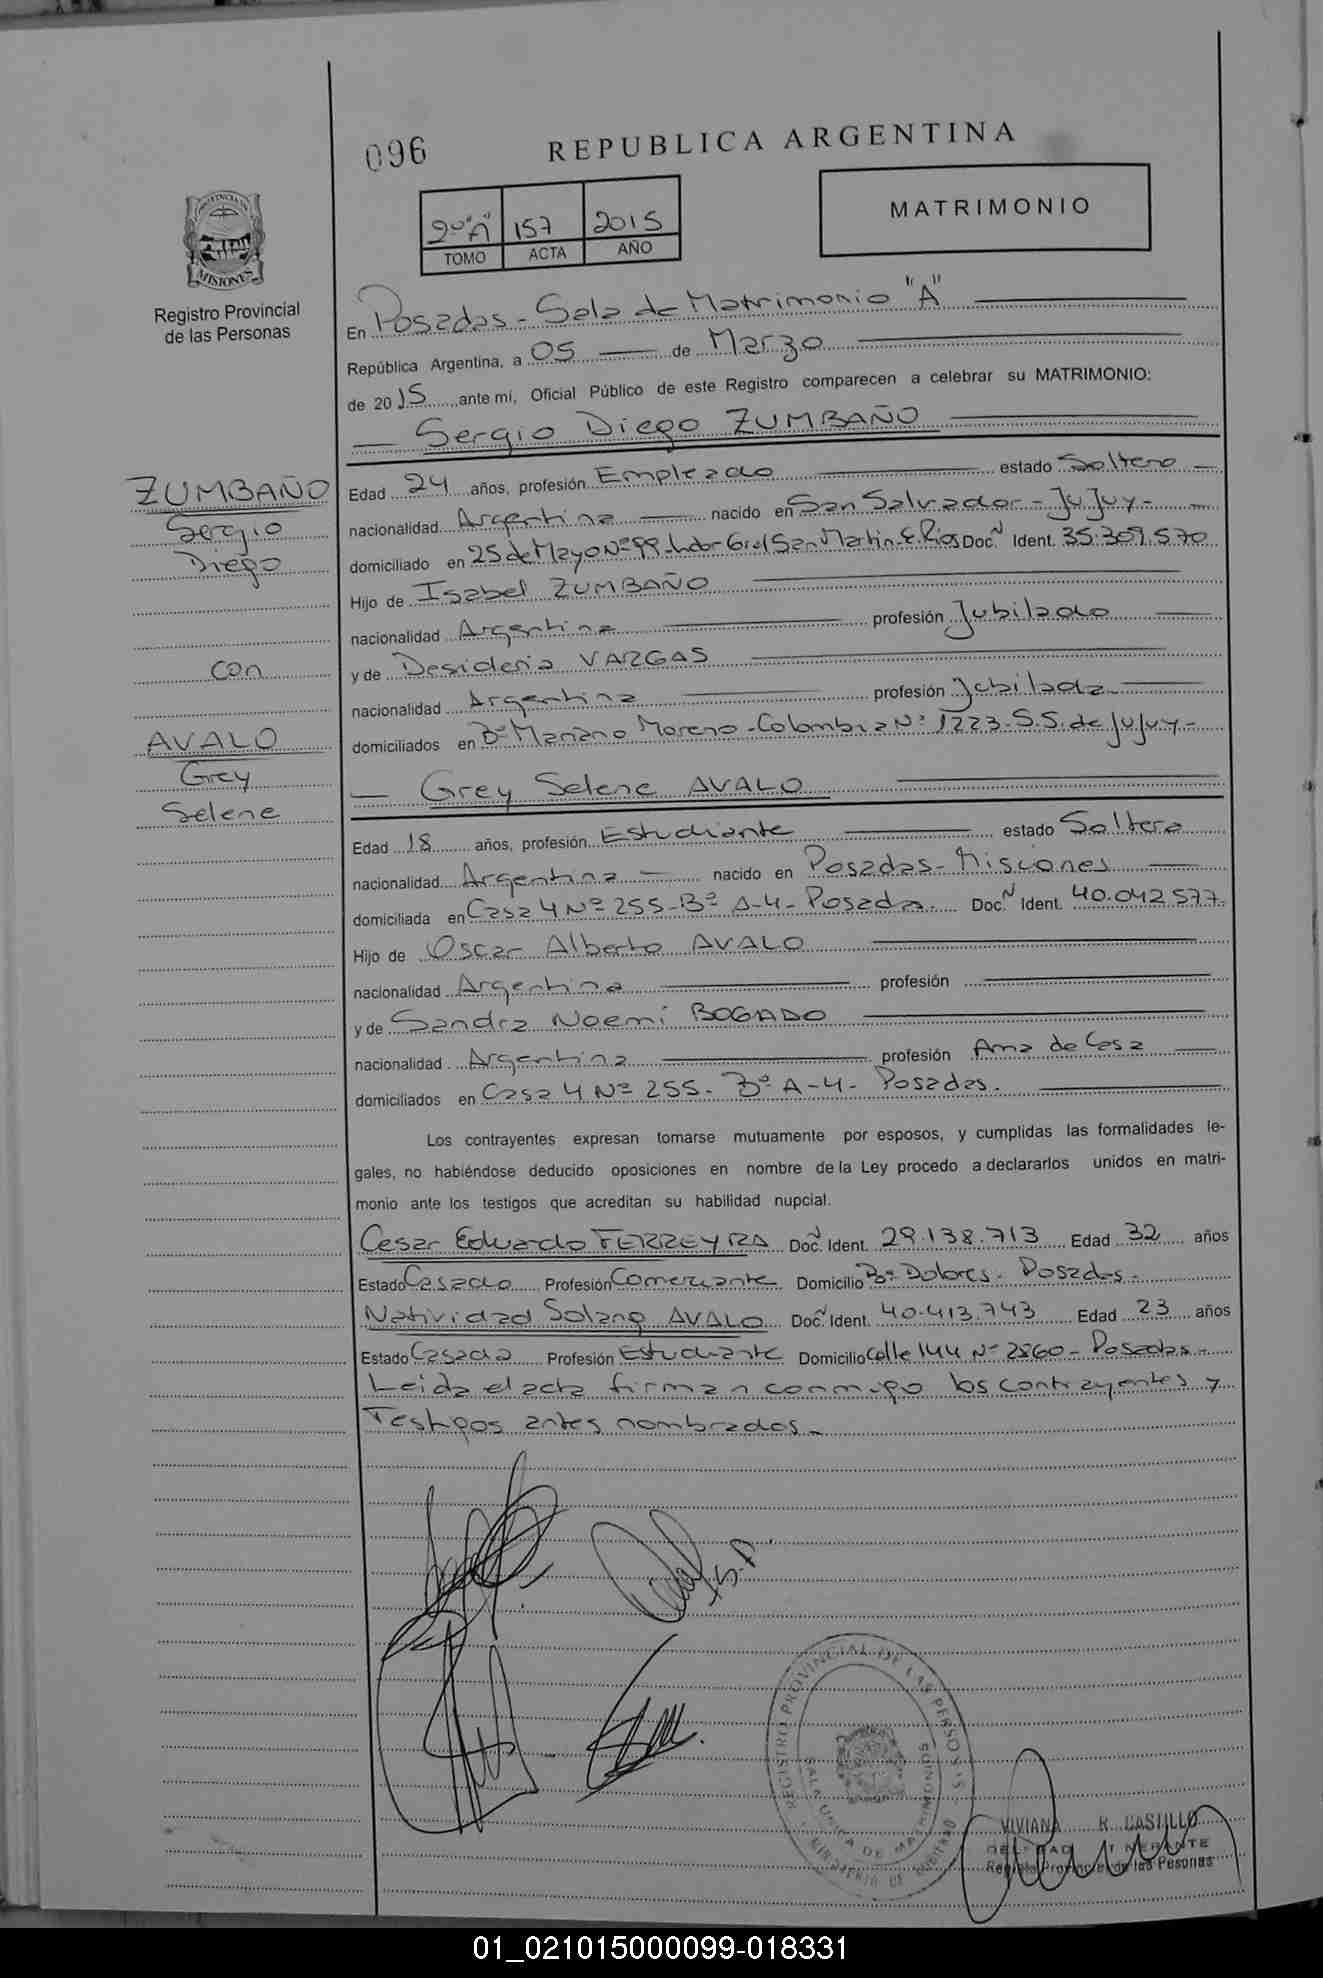 096
REPUBLICA ARGENTINA
2º"A" 157 2015
TOMO ACTA AÑO
MATRIMONIO
PROVINCIA DE
MISIONES
Registro Provincial
de las Personas
En Posadas - Sala de Matrimonio "A"
República Argentina, a 05 de Marzo
de 2015 ante mí, Oficial Público de este Registro comparecen a celebrar su MATRIMONIO:
Sergio Diego ZUMBAÑO
ZUMBAÑO
Sergio
Diego
con
AVALO
Grey
Selene
Edad 24 años, profesión Empleado estado Soltero
nacionalidad Argentina nacido en San Salvador - Jujuy -
domiciliado en 25 de Mayo Nº 99 - Lbdor Gral San Martin - E. Rios Doc. N Ident. 35.309.570
Hijo de Isabel ZUMBAÑO
nacionalidad Argentina profesión Jubilado
y de Desideria VARGAS
nacionalidad Argentina profesión Jubilada
domiciliados en Bº Mariano Moreno - Colombia Nº 1223 - S.S. de Jujuy -
Grey Selene AVALO
Edad 18 años, profesión Estudiante estado Soltera
nacionalidad Argentina nacido en Posadas - Misiones
domiciliada en Casa 4 Nº 255 - Bº A-4 - Posadas. Doc. N Ident. 40.042.577
Hijo de Oscar Alberto AVALO
nacionalidad Argentina profesión
y de Sandra Noemi BOGADO
nacionalidad Argentina profesión Ama de Casa
domiciliados en Casa 4 Nº 255 - Bº A-4 - Posadas.
Los contrayentes expresan tomarse mutuamente por esposos, y cumplidas las formalidades le-
gales, no habiéndose deducido oposiciones en nombre de la Ley procedo a declararlos unidos en matri-
monio ante los testigos que acreditan su habilidad nupcial.
Cesar Eduardo FERREYRA Doc. N Ident. 29.138.713 Edad 32 años
Estado Casado Profesión Comerciante Domicilio Bº Dolores - Posadas -
Natividad Solang AVALO Doc. N Ident. 40.413.743 Edad 23 años
Estado Casada Profesión Estudiante Domicilio Calle 144 Nº 2860 - Posadas -
Leida el acta firman conmigo los contrayentes y
Testigos antes nombrados -
REGISTRO PROVINCIAL DE LAS PERSONAS
SALA UNICA DE MATRIMONIOS
VIVIANA R. CASTILLO
Registro Provincial de las Pesonas
01_021015000099-018331